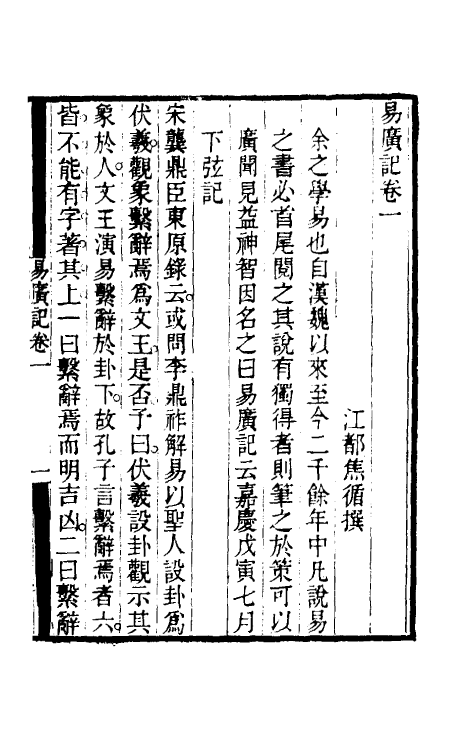 易廣記卷一
江都焦循撰
余之學易也自漢魏以來至今二千餘年中凡說易
之書必首尾閱之其說有獨得者則筆之於策可以
廣聞見益神智因名之曰易廣記云嘉慶戊寅七月
下弦記
宋龔鼎臣東原錄云或問李鼎祚解易以聖人設卦爲
伏羲觀象繫辭焉爲文王是否予曰伏羲設卦觀示其
象於人文王演易繫辭於卦下故孔子言繫辭焉者六
皆不能有字著其上一曰繫辭焉而明吉凶二曰繫辭
易廣記卷一
一